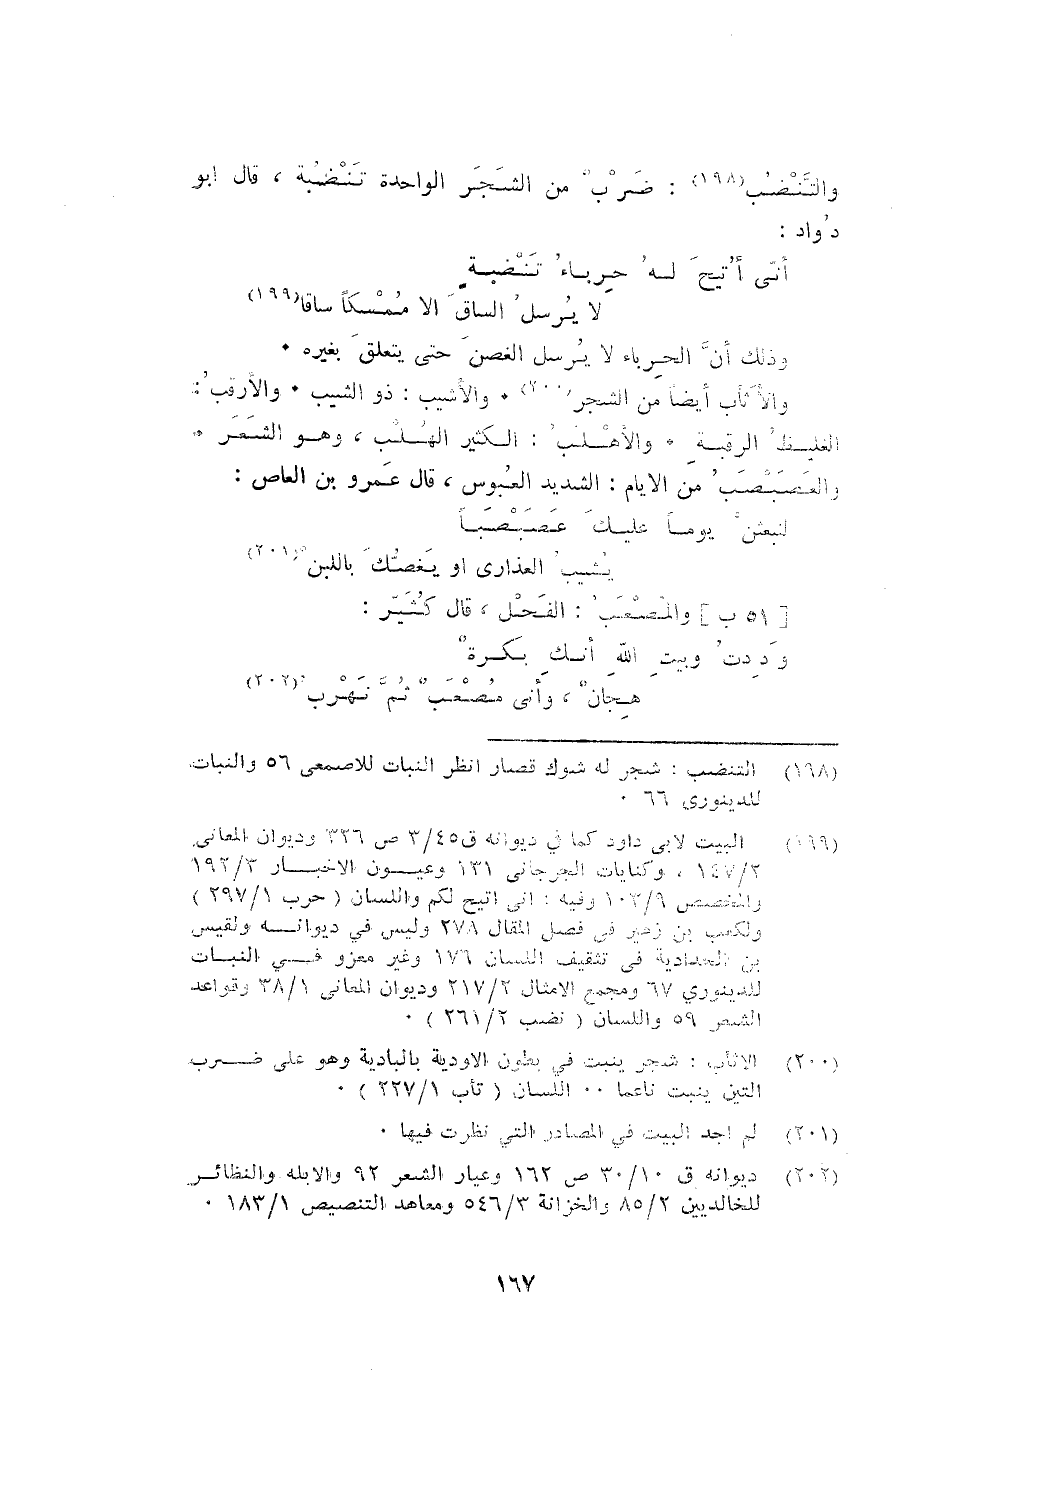 والتَّنْضُب(١٩٨) : ضَرْبٌ من الشَجَر الواحدة تَنْضُبة ، قال ابو
دُواد :
أنّى أُتيحَ لـه حِربـاءُ تَنْضُبـةٍ
لا يُرسلُ الساقَ الا مُمْسكاً ساقا(١٩٩)
وذلك أنَّ الحِرباء لا يُرسل الغصنَ حتى يتعلقَ بغيره •
والأثأب أيضاً من الشجر(٢٠٠) • والأشيب : ذو الشيب • والأرقبُ :
الغليـظُ الرقبـةِ • والأهْـلَبُ : الـكثير الهُـلْب ، وهـو الشَعَر •
والعَصَبْصَبُ من الايام : الشديد العُبُوس ، قال عَمرو بن العاص :
لنبعثنْ يومـاً عليـكَ عَصَبْصَبـاً
يُشيبُ العذارى او يَغصُّكَ باللبنِ(٢٠١)
[ ٥١ ب ] والمُصْعَبُ : الفَحْل ، قال كُثَيّر :
وَدِدتُ وبيتِ اللهِ أنـكِ بَكـرةٌ
هِجانٌ ، وأنى مُصْعَبٌ ثُمَّ نَهْرُبُ(٢٠٢)
(١٩٨) التنضب : شجر له شوك قصار انظر النبات للاصمعى ٥٦ والنبات
للدينوري ٦٦ •
(١٩٩) البيت لابى داود كما في ديوانه ق٣/٤٥ ص ٣٢٦ وديوان المعانى
١٤٧/٢ ، وكنايات الجرجانى ١٣١ وعيـون الاخبـار ١٩٢/٣
والمخصص ١٠٣/٩ وفيه : انى اتيح لكم واللسان ( حرب ٢٩٧/١ )
ولكعب بن زهير في فصل المقال ٢٧٨ وليس في ديوانـه ولقيس
بن الحدادية في تثقيف اللسان ١٧٦ وغير معزو فـي النبـات
للدينوري ٦٧ ومجمع الامثال ٢١٧/٢ وديوان المعانى ٣٨/١ وقواعد
الشعر ٥٩ واللسان ( نضب ٢٦١/٢ ) •
(٢٠٠) الاثأب : شجر ينبت في بطون الاودية بالبادية وهو على ضـرب
التين ينبت ناعما •• اللسان ( ثأب ٢٢٧/١ ) •
(٢٠١) لم اجد البيت في المصادر التي نظرت فيها •
(٢٠٢) ديوانه ق ٣٠/١٠ ص ١٦٢ وعيار الشعر ٩٢ والابله والنظائـر
للخالديين ٨٥/٢ والخزانة ٥٤٦/٣ ومعاهد التنصيص ١٨٣/١ •
١٦٧